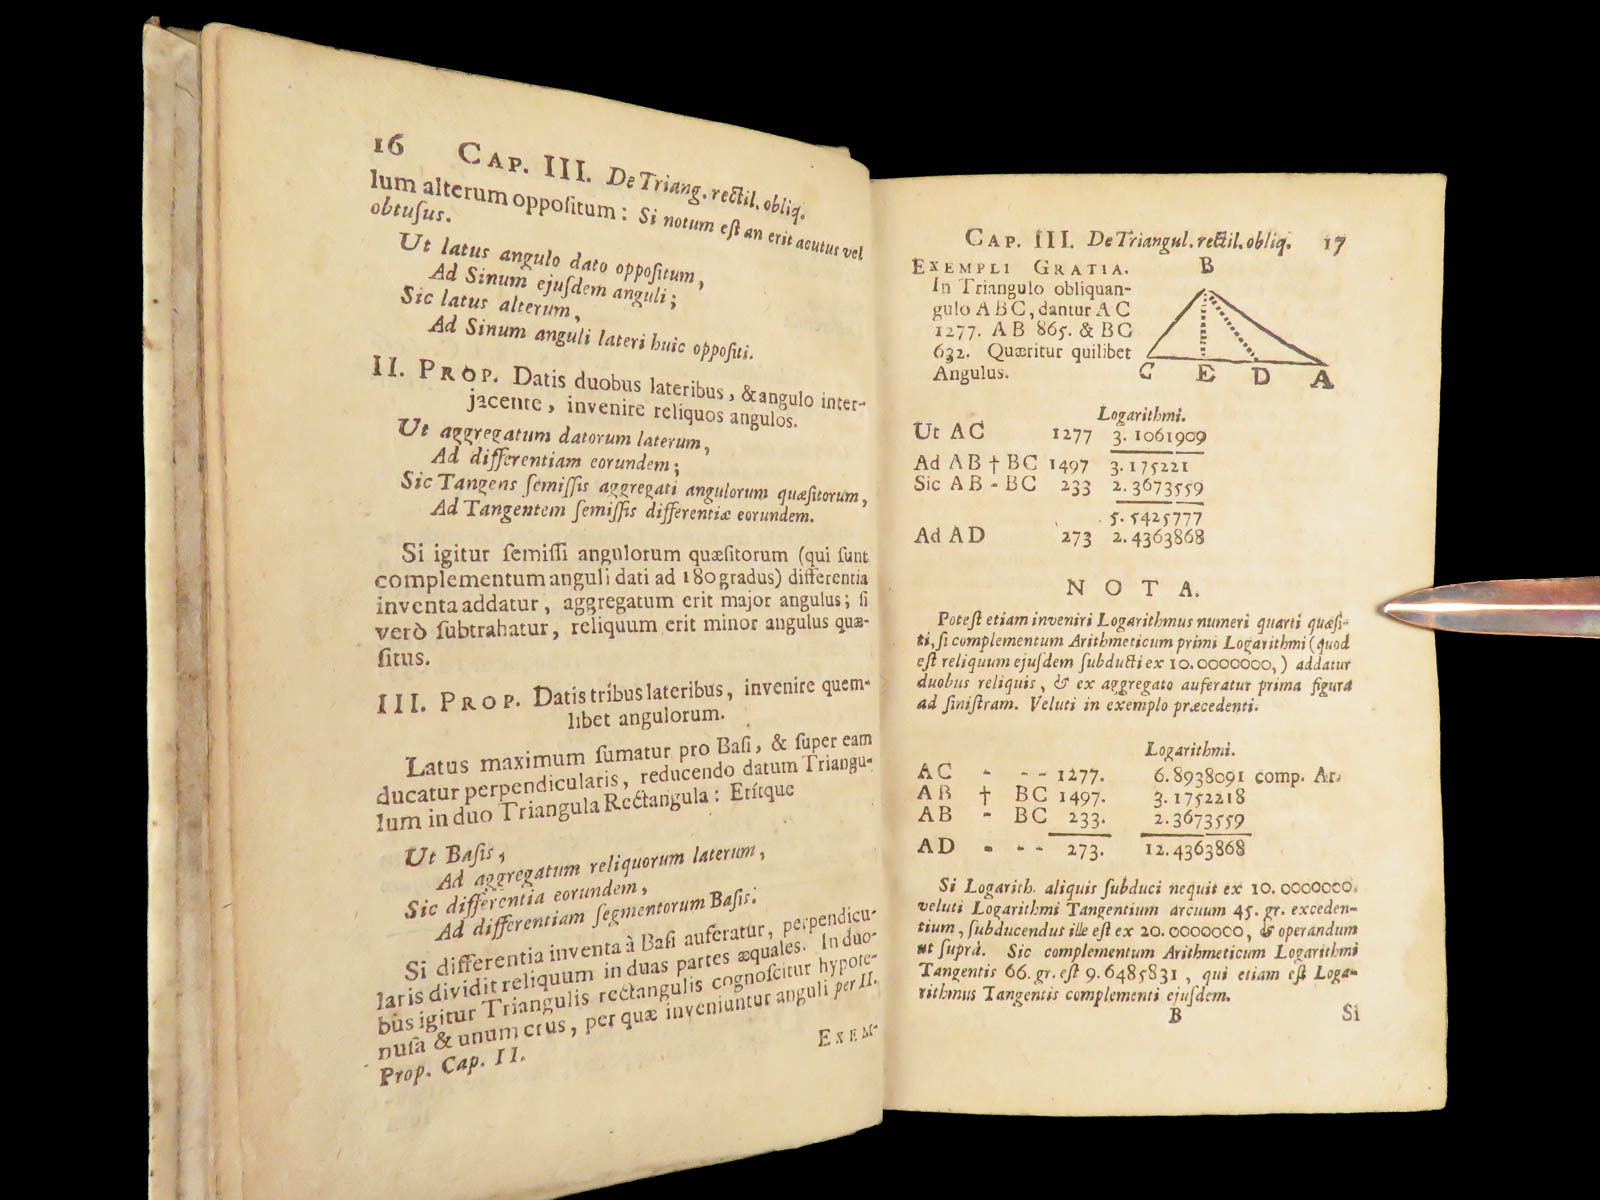 16 CAP. III. De Triang. rectil. obliq.
lum alterum oppoſitum: Si notum eſt an erit acutus vel
obtuſus.
Ut latus angulo dato oppoſitum,
Ad Sinum ejuſdem anguli;
Sic latus alterum,
Ad Sinum anguli lateri huic oppoſiti.
II. PROP. Datis duobus lateribus, & angulo inter-
jacente, invenire reliquos angulos.
Ut aggregatum datorum laterum,
Ad differentiam eorundem;
Sic Tangens ſemiſſis aggregati angulorum quæſitorum,
Ad Tangentem ſemiſſis differentiæ eorundem.
Si igitur ſemiſſi angulorum quæſitorum (qui ſunt
complementum anguli dati ad 180 gradus) differentia
inventa addatur, aggregatum erit major angulus; ſi
verò ſubtrahatur, reliquum erit minor angulus quæ-
ſitus.
III. PROP. Datis tribus lateribus, invenire quem-
libet angulorum.
Latus maximum ſumatur pro Baſi, & ſuper eam
ducatur perpendicularis, reducendo datum Triangu-
lum in duo Triangula Rectangula: Erítque
Ut Baſis,
Ad aggregatum reliquorum laterum,
Sic differentia eorundem,
Ad differentiam ſegmentorum Baſis.
Si differentia inventa à Baſi auferatur, perpendicu-
laris dividit reliquum in duas partes æquales. In duo-
bus igitur Triangulis rectangulis cognoſcitur hypote-
nuſa & unum crus, per quæ inveniuntur anguli per II.
Prop. Cap. II.
EXEM-
CAP. III. De Triangul. rectil. obliq. 17
EXEMPLI GRATIA.
In Triangulo obliquan-
gulo ABC, dantur AC
1277. AB 865. & BC
632. Quæritur quilibet
Angulus.
B
C E D A
Logarithmi.
Ut AC 1277 3.1061909
Ad AB † BC 1497 3.175221
Sic AB - BC 233 2.3673559
5.5425777
Ad AD 273 2.4363868
NOTA.
Poteſt etiam inveniri Logarithmus numeri quarti quæſi-
ti, ſi complementum Arithmeticum primi Logarithmi (quod
eſt reliquum ejuſdem ſubducti ex 10.0000000,) addatur
duobus reliquis, & ex aggregato auferatur prima figura
ad ſiniſtram. Veluti in exemplo præcedenti.
Logarithmi.
AC - - - 1277. 6.8938091 comp. Ar.
AB † BC 1497. 3.1752218
AB - BC 233. 2.3673559
AD - - - 273. 12.4363868
Si Logarith. aliquis ſubduci nequit ex 10.0000000.
veluti Logarithmi Tangentium arcuum 45. gr. exceden-
tium, ſubducendus ille eſt ex 20.0000000, & operandum
ut ſuprà. Sic complementum Arithmeticum Logarithmi
Tangentis 66. gr. eſt 9.6485831, qui etiam eſt Loga-
rithmus Tangentis complementi ejuſdem.
B Si